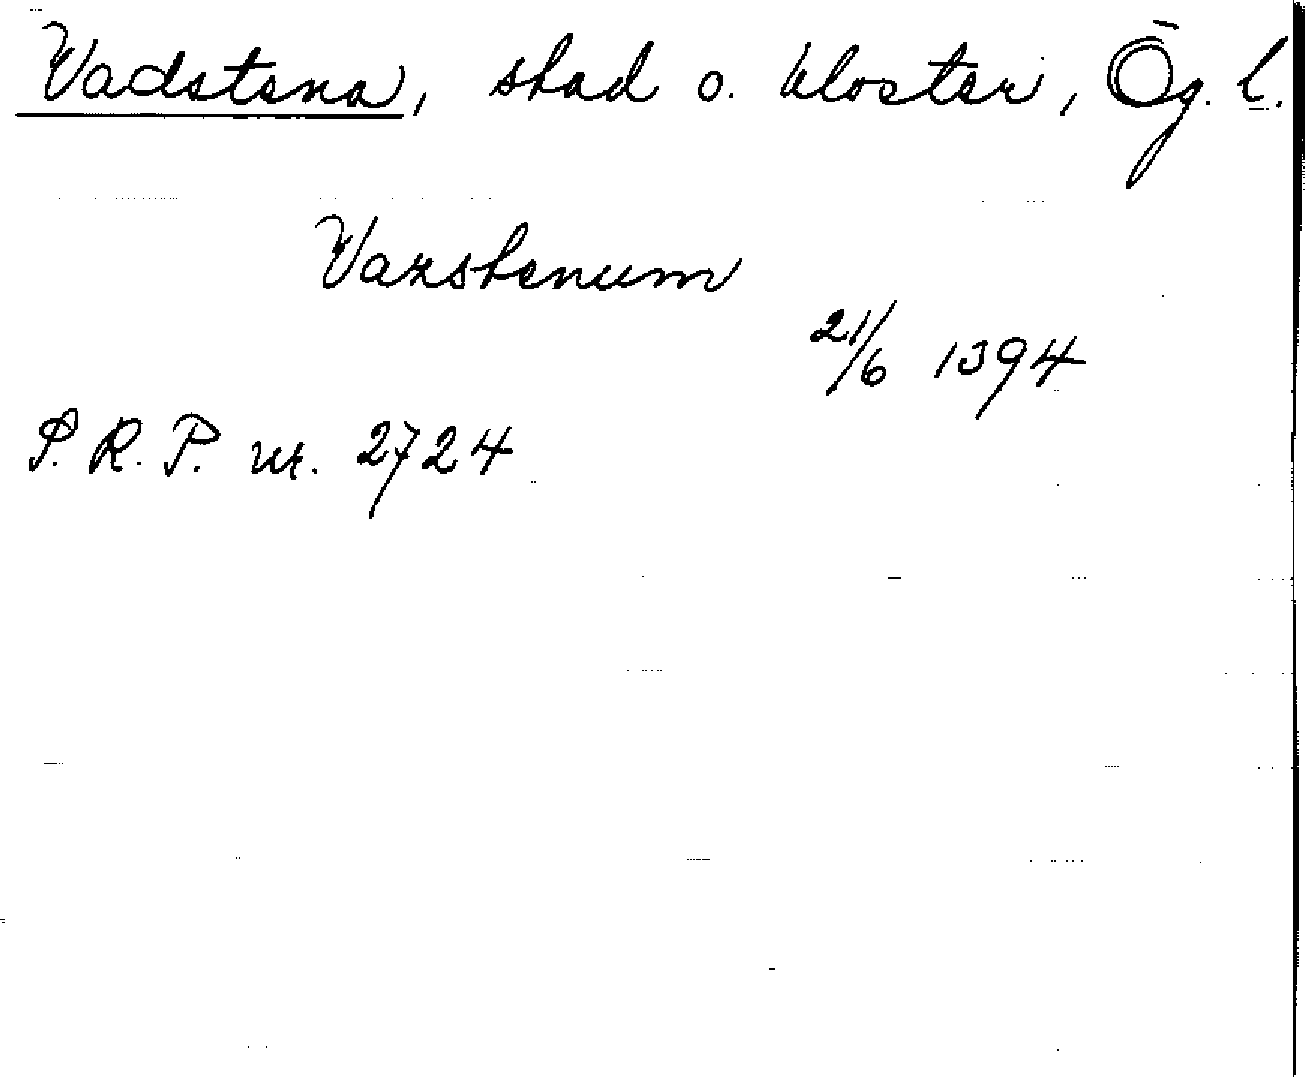 Vadstena, stad o. kloster, Ög. l.
Vazstenum
21/6 1394
S.R.P. nr. 2724